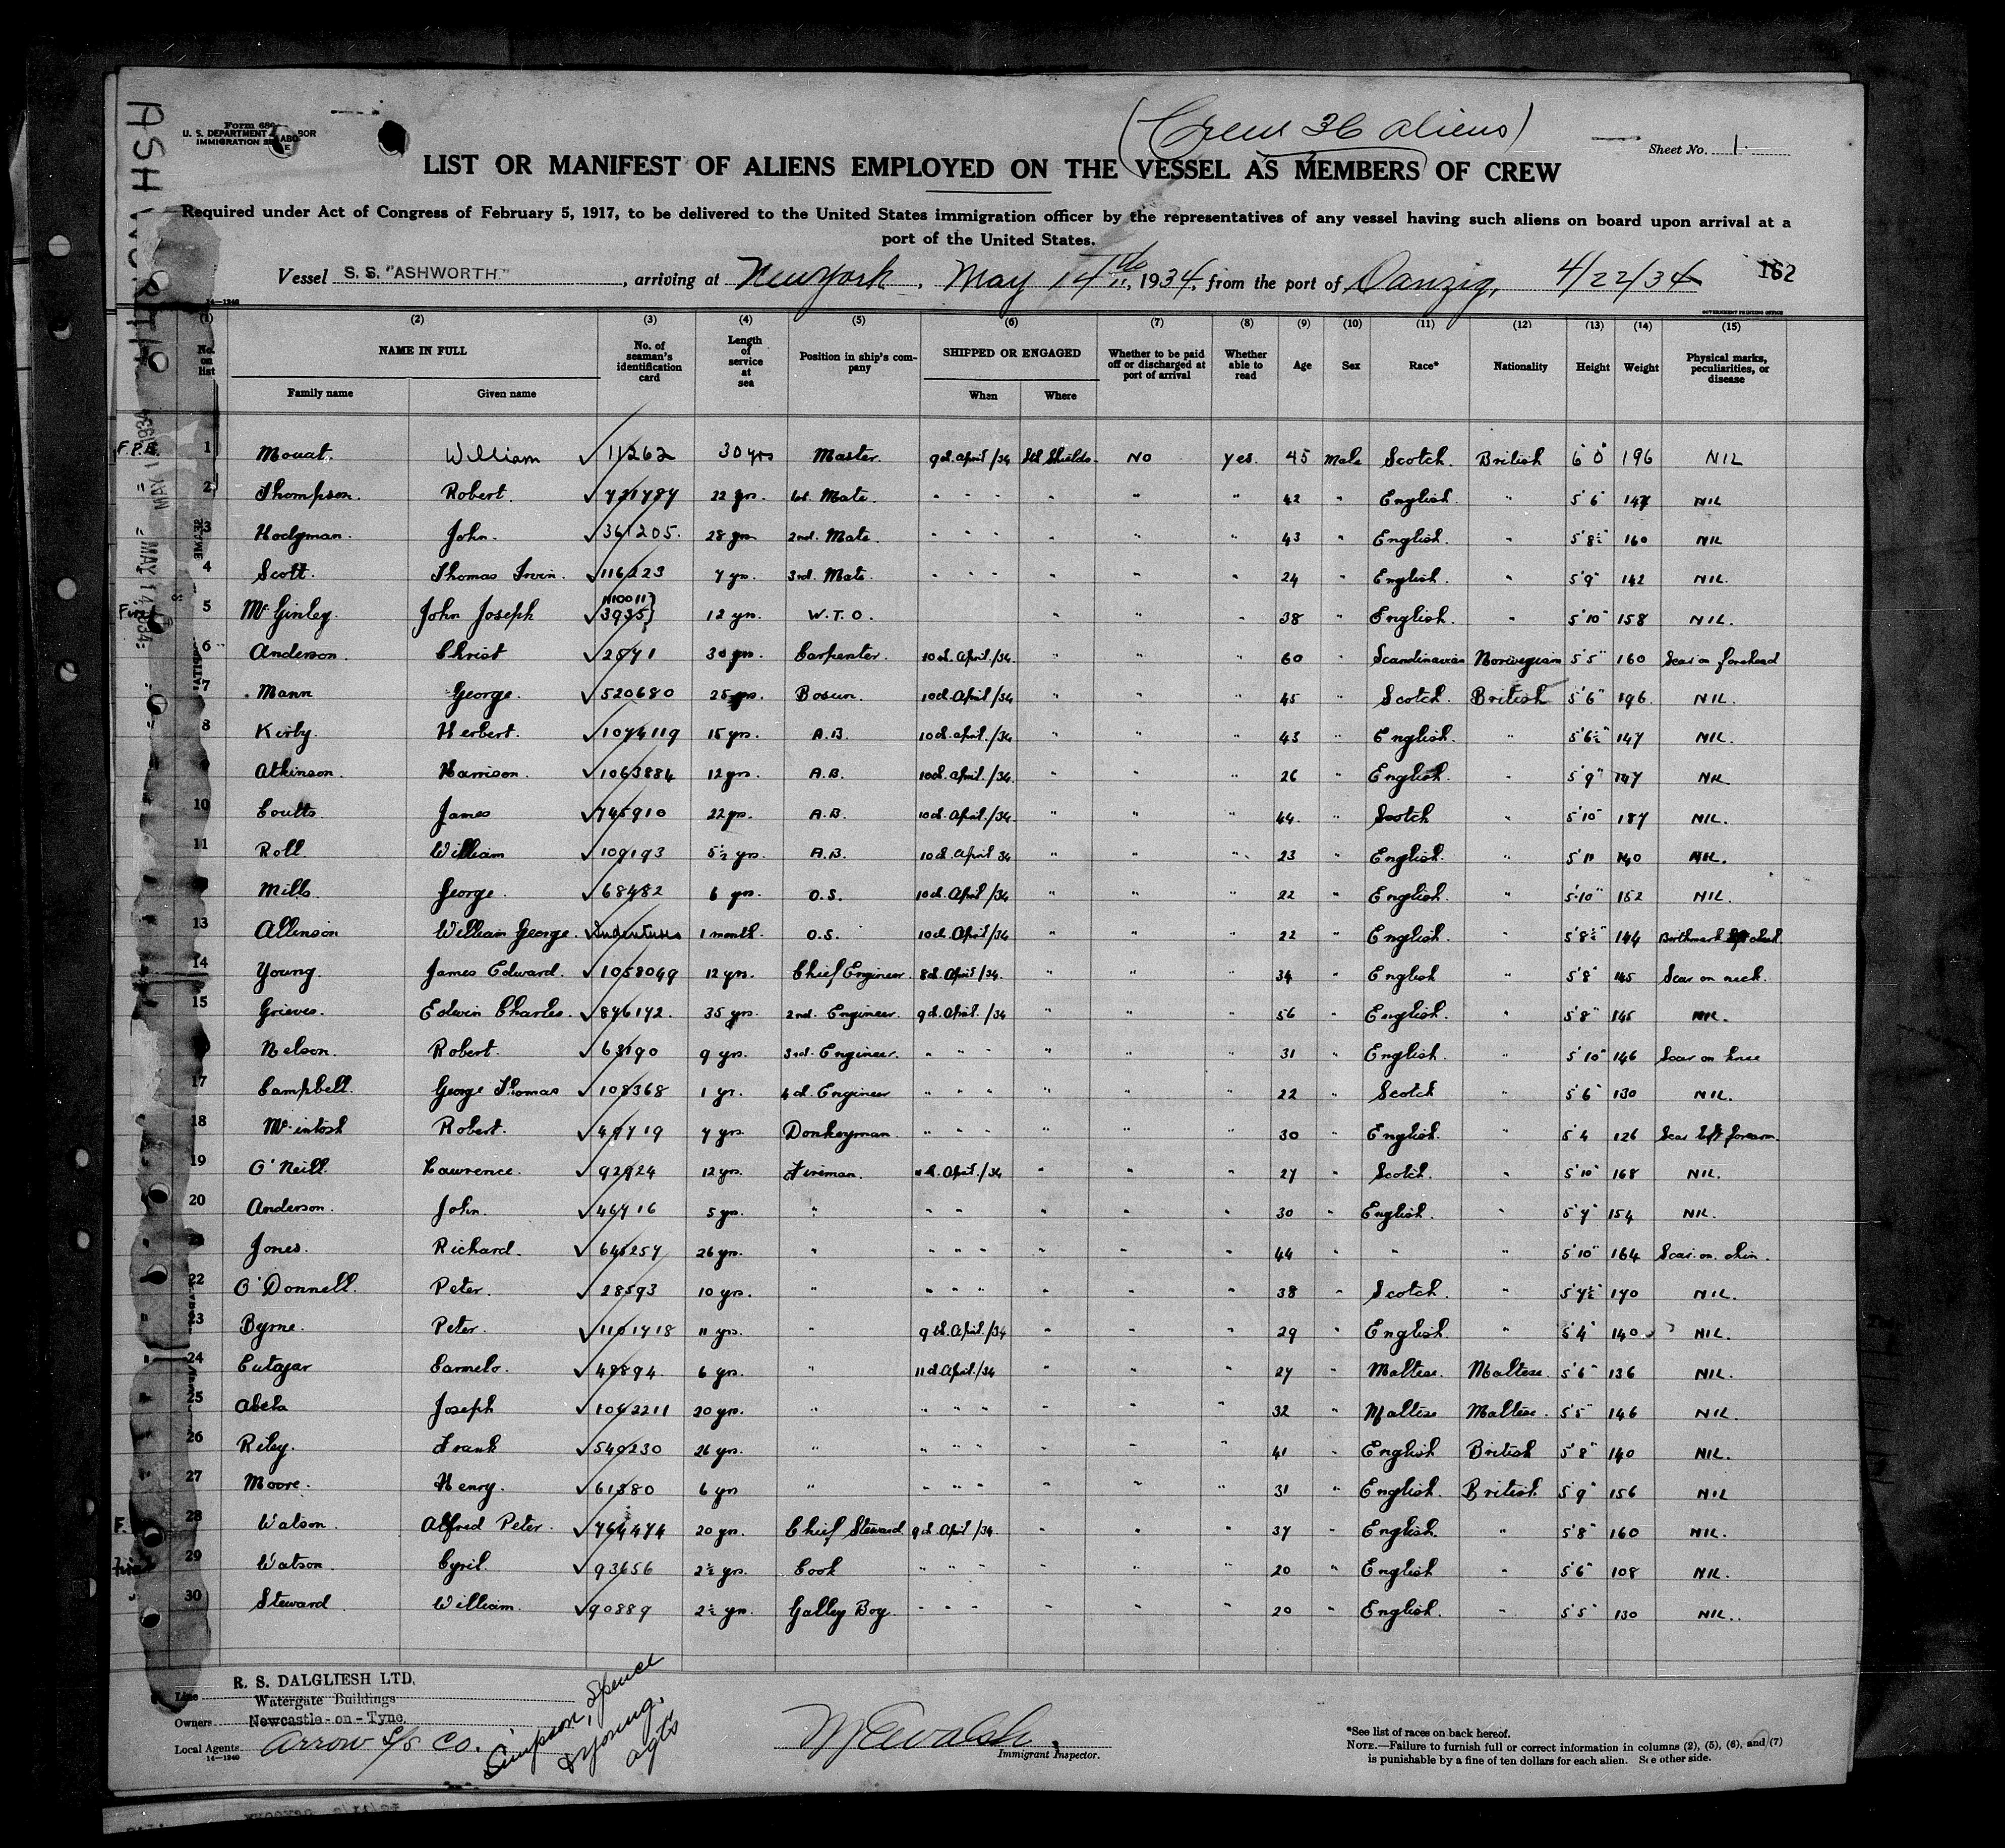 (Crew 36 aliens)
U. S. DEPARTMENT
IMMIGRATION
Sheet No. 1
LIST OR MANIFEST OF ALIENS EMPLOYED ON THE VESSEL AS MEMBERS OF CREW
Required under Act of Congress of February 5, 1917, to be delivered to the United States immigration officer by the representatives of any vessel having such aliens on board upon arrival at a
port of the United States.
Vessel S. S. "ASHWORTH." , arriving at New York, May 14th, 1934, from the port of Danzig, 4/22/34 162
14—1240 GOVERNMENT PRINTING OFFICE
(1) (2) (3) (4) (5) (6) (7) (8) (9) (10) (11) (12) (13) (14) (15)
No. on list NAME IN FULL Family name Given name No. of seaman's identification card Length of service at sea Position in ship's company SHIPPED OR ENGAGED When Where Whether to be paid off or discharged at port of arrival Whether able to read Age Sex Race* Nationality Height Weight Physical marks, peculiarities, or disease
1 Mouat. William 11262 30 yrs Master. 9th April/34 Sth Shields. No yes. 45 Male Scotch. British 6'0" 196 NIL
2 Thompson. Robert. 721787 22 yrs. 1st. Mate. " " " " " " 42 " English. " 5'6 147 NIL
3 Hodgman. John. 361205. 28 yrs 2nd. Mate. " " " " " " 43 " English. " 5'8½ 160 NIL
4 Scott. Thomas Irvin. 116223 7 yrs. 3rd. Mate. " " " " " " 24 " English. " 5'9" 142 NIL.
5 McGinley. John Joseph 3935 12 yrs. W.T.O. " " " 38 " English. " 5'10" 158 NIL.
6 Anderson. Christ 2571 30 yrs. Carpenter. 10th April/34. " " " 60 " Scandinavian Norwegian 5'5" 160 Scar on forehead
7 Mann George. 520680 25 yrs. Bosun. 10th April/34 " " " 45 " Scotch. British 5'6" 196. NIL.
8 Kirby. Herbert. 1074119 15 yrs. A.B. 10th April/34 " " " 43 " English. " 5'6½" 147 NIL.
Atkinson. Harrison. 1063884 12 yrs. A.B. 10th April/34. " " " 26 " English. " 5'9" 147 NIL
10 Coults. James 745910 22 yrs. A.B. 10th April/34 " " " 44. " Scotch " 5'10" 187 NIL.
11 Roll. William 109193 5½ yrs. A.B. 10th April 34 " " " 23 " English. " 5'11 140 NIL.
Mills. George. 68482 6 yrs. O.S. 10th April/34 " " " 22 " English. " 5'10" 152 NIL.
13 Allinson William George. Indentures 1 month. O.S. 10th April/34 " " " 22 " English. " 5'8½" 144 Birthmark left cheek
14 Young. James Edward. 1058049 12 yrs. Chief Engineer. 8th April/34. " " " 34 " English " 5'8" 145 Scar on neck.
15 Grieves. Edwin Charles. 876172. 35 yrs. 2nd. Engineer. 9th April/34 " " " 56 " English. " 5'8" 145 NIL.
Nelson. Robert. 63190 9 yrs. 3rd. Engineer. " " " " " " 31 " English. " 5'10" 146 Scar on knee
17 Campbell. George Thomas 108368 1 yr. 4th. Engineer " " " " " " 22 " Scotch " 5'6" 130 NIL.
18 McIntosh Robert. 49719 7 yrs Donkeyman. " " " " " " 30 " English. " 5'4 126 Scar left forearm.
19 O'Neill. Lawrence. 92924 12 yrs. Fireman. 11th April/34 " " " 27 " Scotch. " 5'10" 168 NIL.
20 Anderson. John. 46716 5 yrs. " " " " " " 30 " English. " 5'7" 154 NIL.
Jones. Richard. 645257 26 yrs. " " " " " " " 44 " " " 5'10" 164 Scar on chin.
22 O'Donnell. Peter. 28593 10 yrs. " " " " " " " 38 " Scotch. " 5'7½" 170 NIL.
23 Byrne. Peter. 1101718 11 yrs. " 9th April/34 " " " 29 " English. " 5'4" 140. NIL.
24 Cutajar Carmelo. 48894. 6 yrs. " 11th April/34 " " " 27 " Maltese. Maltese. 5'6" 136 NIL.
25 Abela Joseph 1042211 20 yrs. " " " " " " " 32 " Maltese Maltese. 5'5" 146 NIL.
26 Riley. Frank 540230 26 yrs. " " " " " " " 41 " English British 5'8" 140 NIL.
27 Moore. Henry. 61380 6 yrs " " " " " " " 31 " English. British. 5'9" 156 NIL
28 Watson. Alfred Peter. 764474 20 yrs. Chief Steward 9th April/34. " " " 37 " English. " 5'8" 160 NIL.
29 Watson. Cyril. 93656 2½ yrs. Cook " " " " " " 20 " English " 5'6" 108 NIL.
30 Steward William. 90889 2½ yrs. Galley Boy. " " " " " " 20 " English. " 5'5" 130 NIL.
Line R. S. DALGLIESH LTD.
Watergate Buildings
Owners Newcastle-on-Tyne.
Local Agents Arrow S/S Co.
14—1240
Simpson, Spence
& Young.
agts
Immigrant Inspector.
*See list of races on back hereof.
NOTE.—Failure to furnish full or correct information in columns (2), (5), (6), and (7)
is punishable by a fine of ten dollars for each alien. See other side.